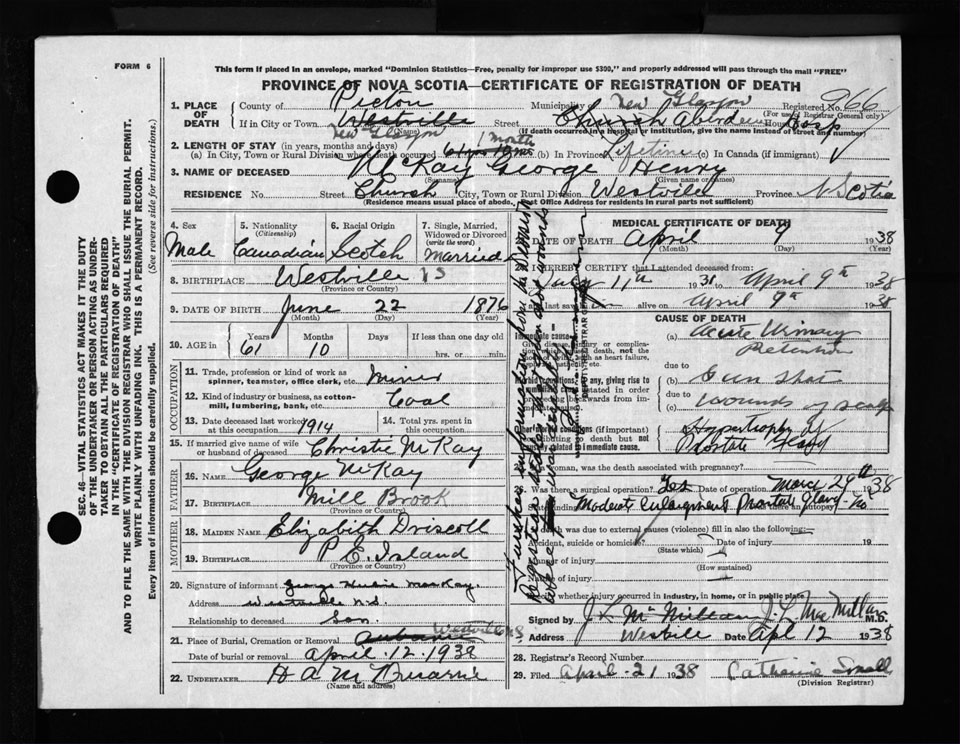 FORM 6
This form if placed in an envelope, marked "Dominion Statistics—Free, penalty for improper use $300," and properly addressed will pass through the mail "FREE"
PROVINCE OF NOVA SCOTIA—CERTIFICATE OF REGISTRATION OF DEATH
1. PLACE OF DEATH
County of Pictou Municipality New Glasgow Registered No. 266
(For use of Registrar General only)
If in City or Town Westville New Glasgow (Name) Street Church Aberdeen House Hosp
(If death occurred in a hospital or institution, give the name instead of street and number)
2. LENGTH OF STAY (in years, months and days)
(a) In City, Town or Rural Division where death occurred 1 month (b) In Province Lifetime (c) In Canada (if immigrant)
3. NAME OF DECEASED McKay George Henry
(Surname) (Given name or names)
RESIDENCE No. Street Church City, Town or Rural Division Westville Province N Scotia
(Residence means usual place of abode. Post Office Address for residents in rural parts not sufficient)
4. Sex Male
5. Nationality (Citizenship) Canadian
6. Racial Origin Scotch
7. Single, Married, Widowed or Divorced (write the word) Married
8. BIRTHPLACE Westville NS
(Province or Country)
9. DATE OF BIRTH June 22 1876
(Month) (Day) (Year)
10. AGE in Years 61 Months 10 Days If less than one day old hrs. or min.
OCCUPATION
11. Trade, profession or kind of work as spinner, teamster, office clerk, etc. Miner
12. Kind of industry or business, as cotton-mill, lumbering, bank, etc. Coal
13. Date deceased last worked at this occupation 1914
14. Total yrs. spent in this occupation
15. If married give name of wife or husband of deceased Christie McKay
FATHER
16. NAME George McKay
17. BIRTHPLACE Mill Brook
(Province or Country)
MOTHER
18. MAIDEN NAME Elizabeth Driscoll
19. BIRTHPLACE P.E. Island
(Province or Country)
20. Signature of informant George MacKay.
Address Westville N.S.
Relationship to deceased Son.
21. Place of Burial, Cremation or Removal Westville N.S
Date of burial or removal April. 12. 1938
22. UNDERTAKER
(Name and address)
MEDICAL CERTIFICATE OF DEATH
DATE OF DEATH April 9 1938
(Month) (Day) (Year)
I HEREBY CERTIFY that I attended deceased from:
11th 1931 to April 9th 1938
alive on April 9th 1938
CAUSE OF DEATH
(a) Acute Urinary Retention
due to
(b) Gun Shot
due to
(c) wounds of scalp
Hypertrophy of Prostate Gland
woman, was the death associated with pregnancy?
Was there a surgical operation? Yes Date of operation March 29th 1938
State finding Moderate Enlargement Prostate Gland Was there an autopsy? No
If death was due to external causes (violence) fill in also the following:—
Accident, suicide or homicide? Date of injury 19
(State which)
Manner of injury
(How sustained)
Nature of injury
whether injury occurred in industry, in home, or in public place
Signed by J. L. McMillan J. L. MacMillan M.D.
Address Westville Date Apl 12 1938
28. Registrar's Record Number
29. Filed April - 21 1938 Catherine Small
(Division Registrar)
Further information
SEC. 46—VITAL STATISTICS ACT MAKES IT THE DUTY
OF THE UNDERTAKER OR PERSON ACTING AS UNDER-
TAKER TO OBTAIN ALL THE PARTICULARS REQUIRED
IN THE "CERTIFICATE OF REGISTRATION OF DEATH"
AND TO FILE THE SAME WITH THE DIVISION REGISTRAR WHO SHALL ISSUE THE BURIAL PERMIT.
WRITE PLAINLY WITH UNFADING INK. THIS IS A PERMANENT RECORD.
Every item of information should be carefully supplied. (See reverse side for instructions.)